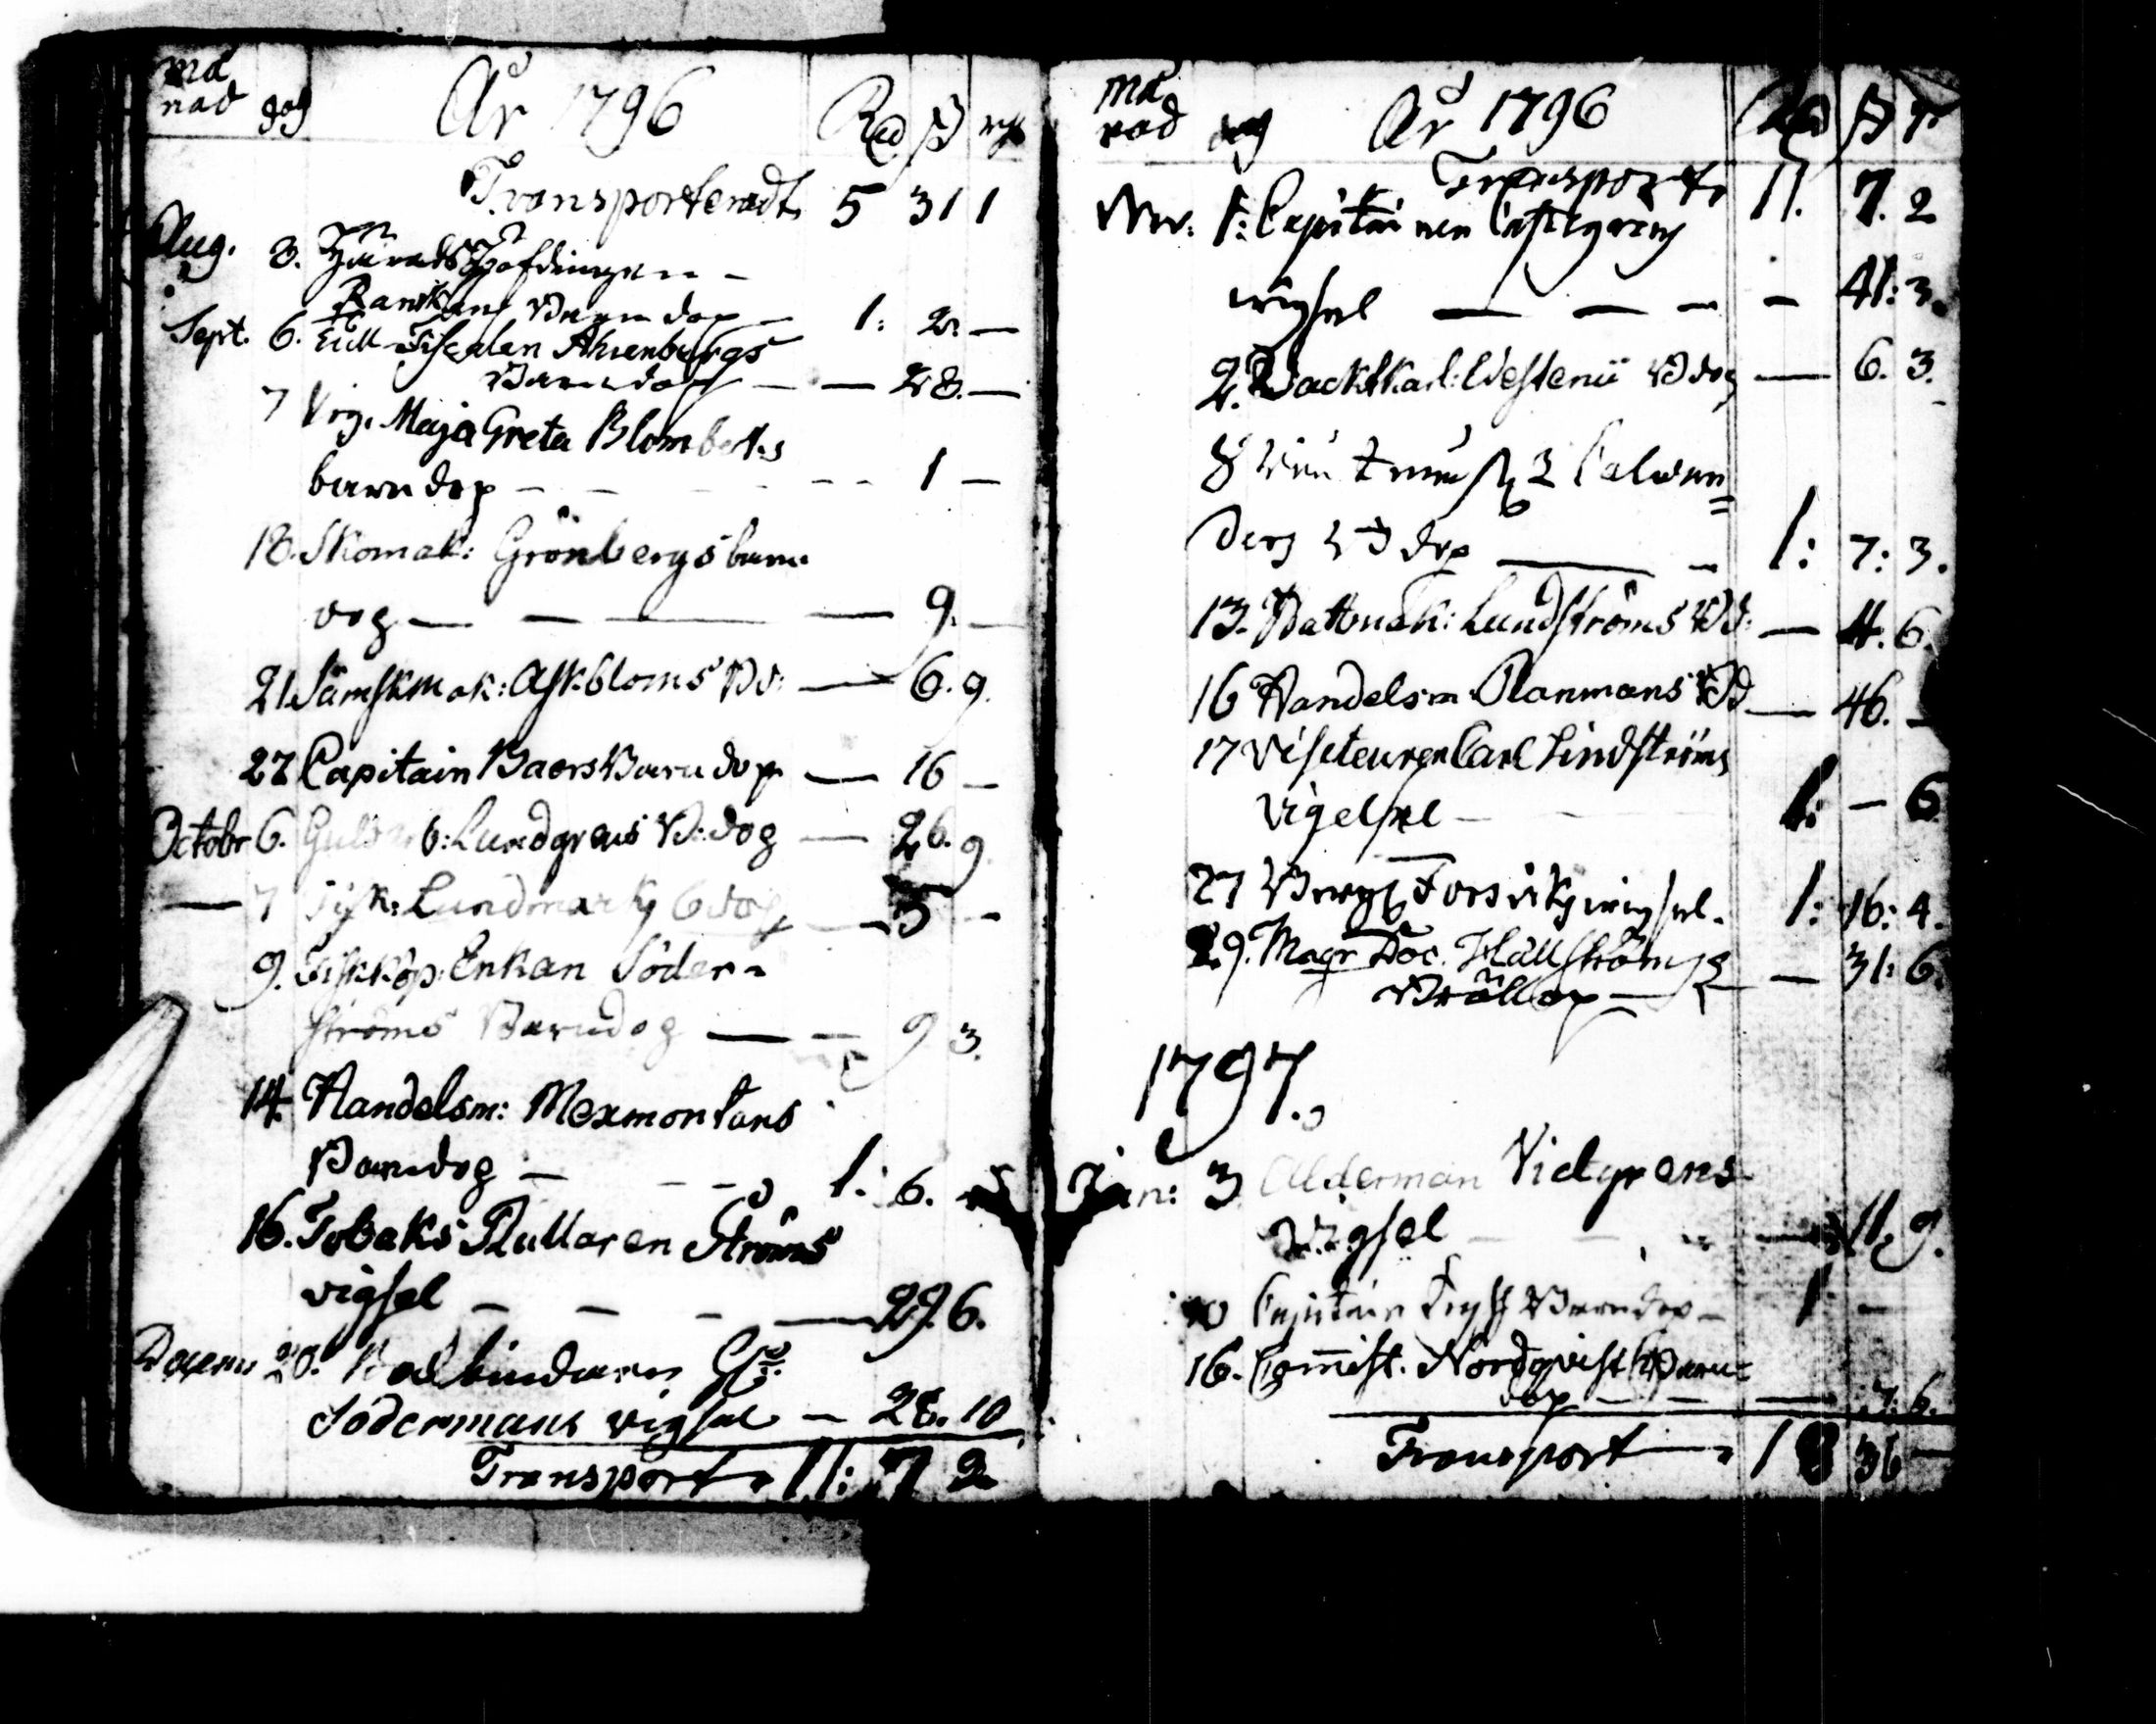 må
nad dag År 1796 Rd ß rst
Transporteradt 5 31 1
Aug. 8. Häradshöfdingen
Barndop 1: 2. —
Sept. 6. Tull Fiscalen Ahrenbergs
Barndop — — 28. —
7 Prg. Maja Greta Blombergs
barndop — — 1 —
18. Skomak: Grönbergs barn
dop — — — 9. —
21 Sämskmak: Askbloms Bd: — 6. 9.
27 Capitain Baers Barndop — 16 —
Octobr 6. b: Lundgrens B: dop — 26. 9.
— 7 Fisk: Lundmarks bdop — 5 —
9. Fiskköp: Enkan Söder-
ströms Barndop — — 9 3.
14. Handelsm: Mexmontans
Barndop — — — 1: 6. —
16. Tobaks Rullaren Ströms
vigsel — — — 29. 6.
20. Bokbindaren
Södermans vigsel — 28. 10
Transport 11: 7 2
må
nad dag År 1796 Rd ß r
Transport 11. 7. 2
Nov. 1: Capitainen
wigsel — — — — 41: 3.
2. Wacktkarl: Westenii Bdop — 6. 3.
8
ders Bdop — — 1: 7: 3.
13. Hattmak: Lundströms Bd: — 4. 6.
16 Handelsm: Planmans Bd — 46. —
17 Visiteuren Carl Lindströms
vigelsel — 1: — 6
27 Forsviks wigsel. 1: 16: 4.
29. Magr Doc. Hällströms
Bröllop — — 31: 6.
1797.
Jan: 3 Alderman Vidgrens
Vigsel — — — 11. 9.
10 Capitain Barndop — 1 —
16. Commiss. Nordqvists Barn-
dop — — — 7: 6.
Transport — 18 36 —